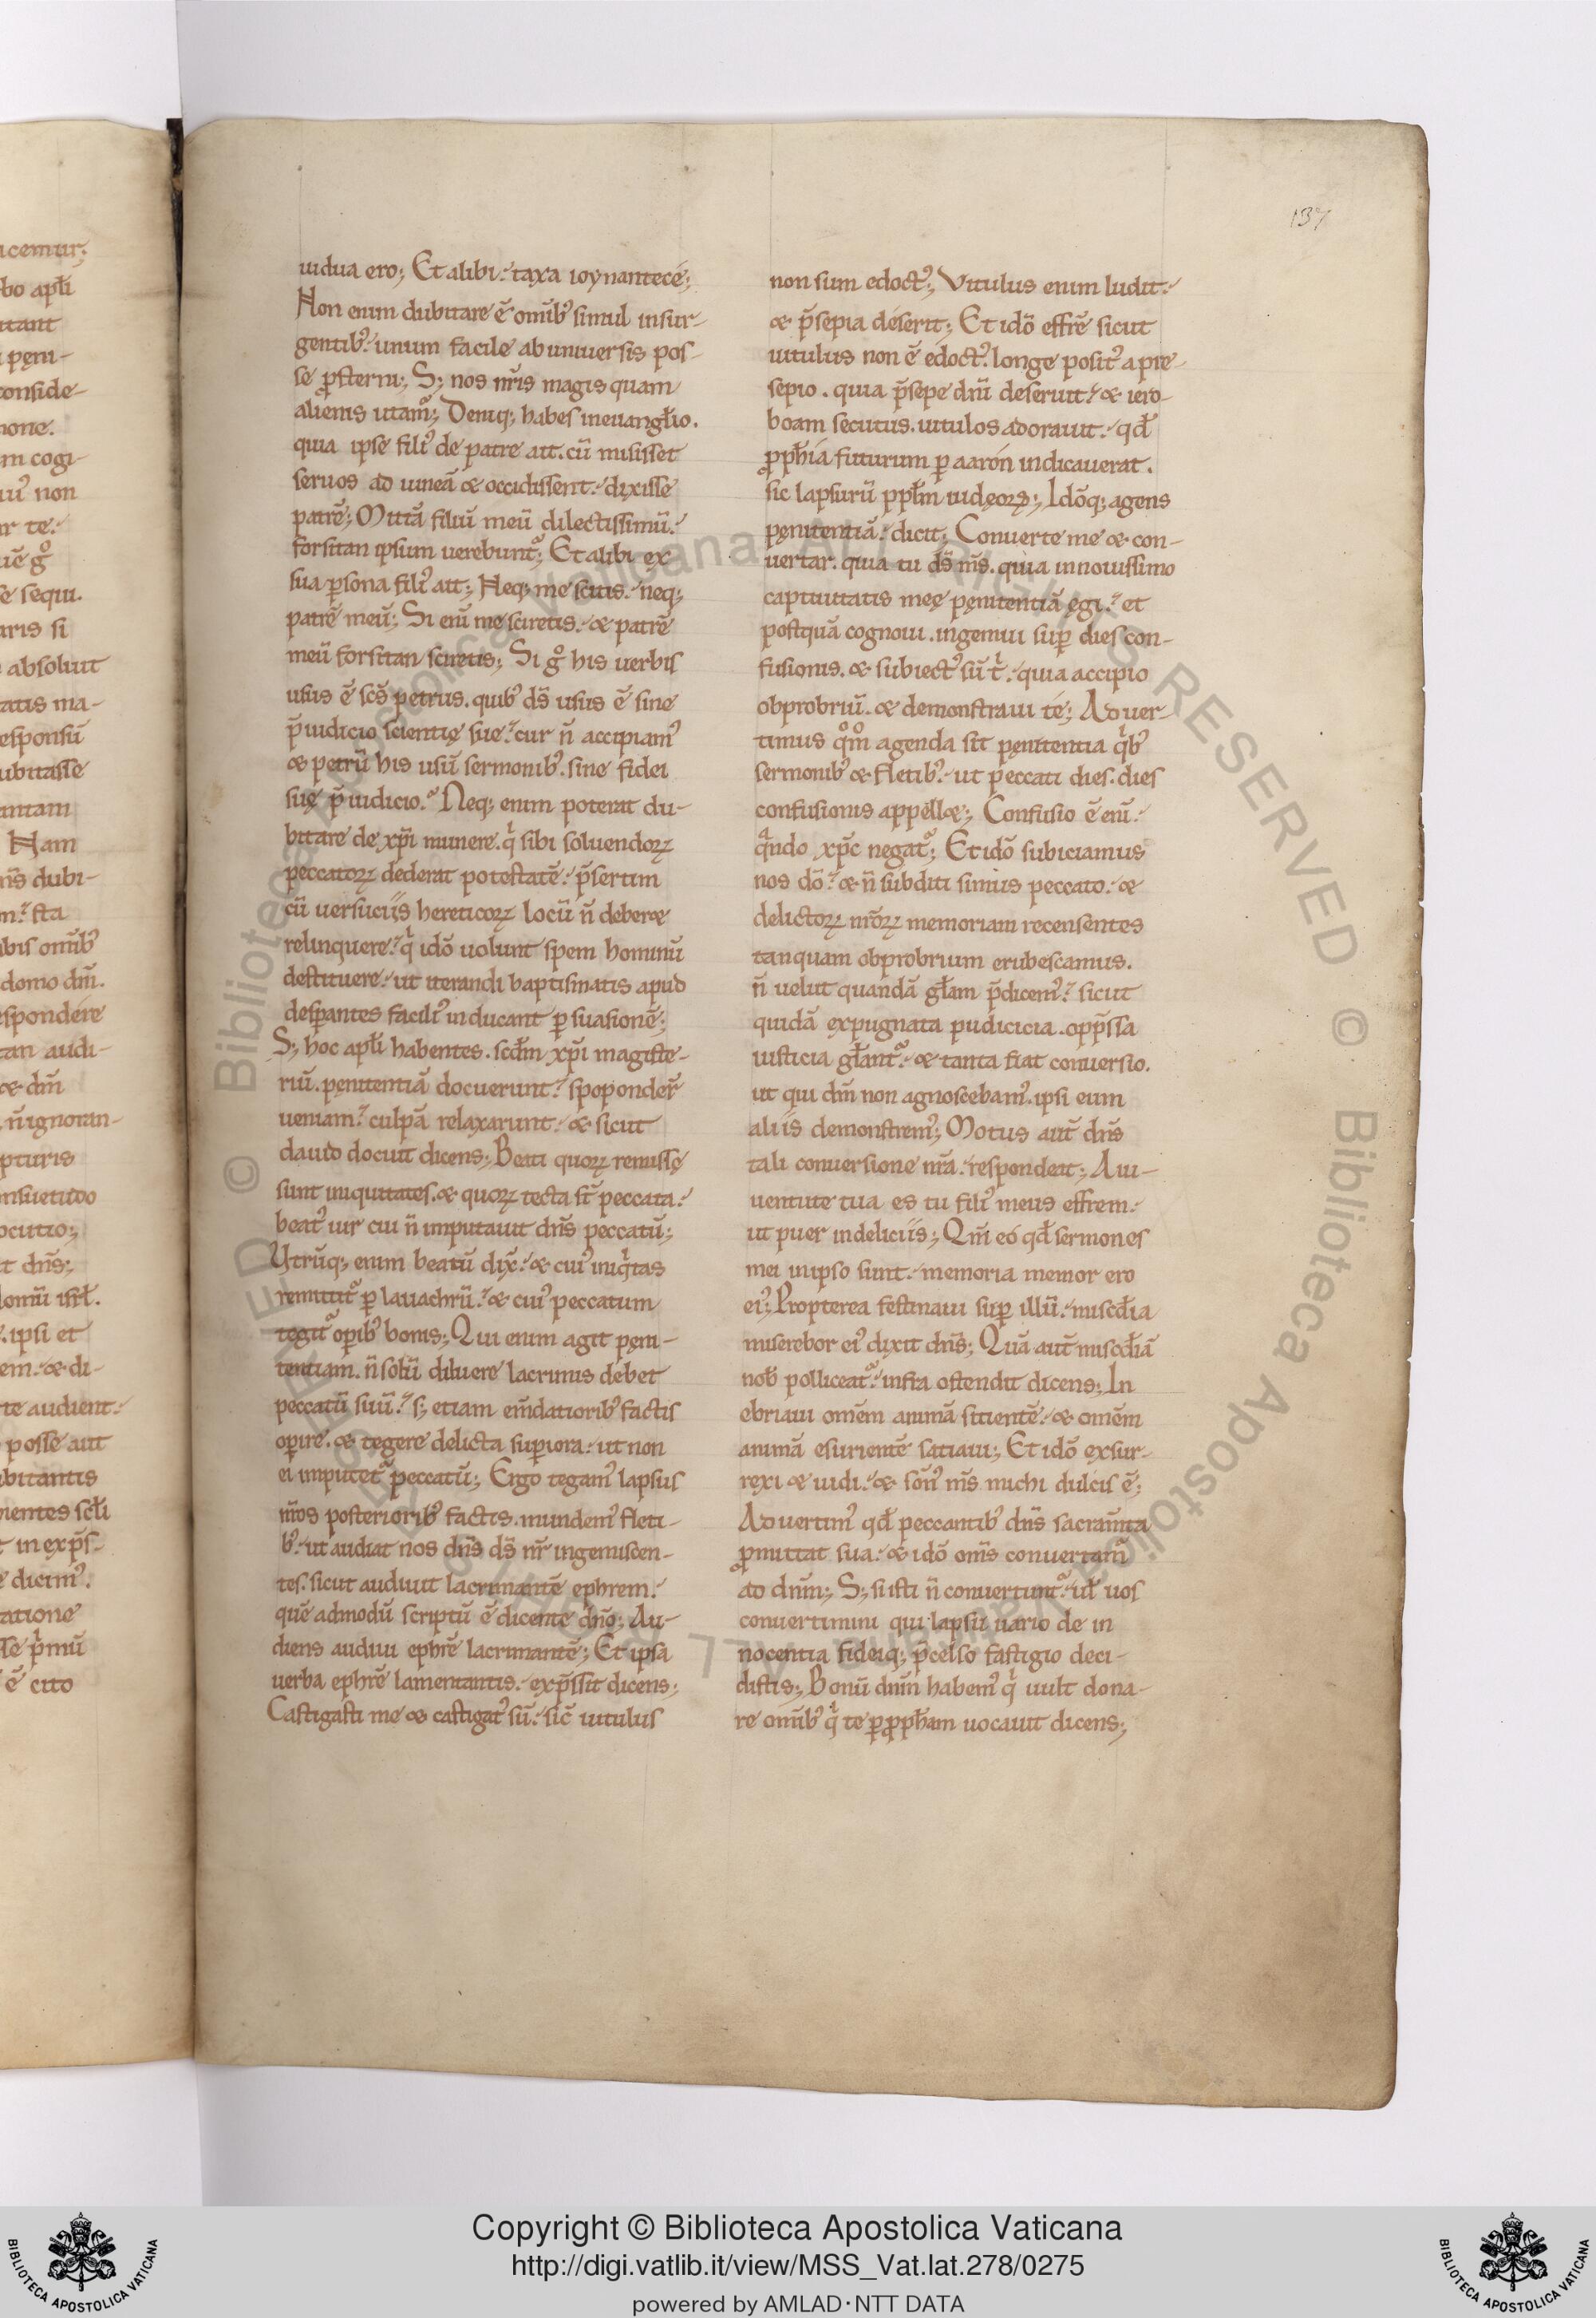 icemur;
bo apƚi
itant
i pęni-
conside-
none.
m cogi-
uꝰ non
ar te.
uē gͦ
se sequi.
aris si
absoluit
tatis ma-
esponsū
ubitasse
antam
Nam
n̄s dubi-
m. sta
ibis om̄ibꝰ
domo dn̄i.
espondere
tan audi-
⁊ dn̄i
n̄ ignoran-
pturis
nsuetudo
ocutio;
t dn̄s;
domū isrƚ.
ipsi et
em. ⁊ di-
rte audient.
posse aut
ubitantis
nentes scƚi
t in exp̄s-
e dicimꝰ.
tatione
sse p̄mū
ē cito
137
uidua ero; Et alibi. taxa ioynantecē;
Non enim dubitare ē om̄ibꝰ simul insur-
gentibꝰ. unum facile ab uniuersis pos-
se ꝓsterni; S; nos nr̄is magis quam
alienis utamᷣ; Deniq; habes in euangƚio.
quia ipse filiꝰ de patre ait. cū misisset
seruos ad uineā ⁊ occidissent. dixisse
patrē; Mittā filiū meū dilectissimū.
forsitan ipsum uerebuntᷣ; Et alibi ex
sua ꝑsona filiꝰ ait; Neq; me scitis. neq;
patrē meū; Si enī me sciretis. ⁊ patrē
meū forsitan sciretis; Si gͦ his uerbis
usus ē scs̄ petrus. quibꝰ ds̄ usus ē sine
p̄iudicio scientię sue. cur n̄ accipiamꝰ
⁊ petrū his usū sermonibꝰ. sine fidei
suę p̄iudicio. Neq; enim poterat du-
bitare de xp̄i munere. qͥ sibi soluendoꝝ
peccatoꝝ dederat potestatē. p̄sertim
cū uersuciis hereticoꝝ locū n̄ deber⁊
relinquere. qͥ idō uolunt spem hominū
destituere. ut iterandi baptismatis apud
desꝑantes faciliꝰ inducant ꝑsuasionē;
S; hoc apƚi habentes. scd̄m xp̄i magiste-
riū. penitentiā docuerunt. spoponder̄
ueniam. culpā relaxarunt. ⁊ sicut
dauid docuit dicens; Beati quoꝝ remissę
sunt iniquitates. ⁊ quoꝝ tecta st̄ peccata.
beatꝰ uir cui n̄ imputauit dn̄s peccatū;
Utrūq; enim beatū dix̄. ⁊ cuiꝰ iniqͥtas
remittitᷣ ꝑ lauachrū. ⁊ cuiꝰ peccatum
tegitᷣ oꝑibꝰ bonis; Qui enim agit pęni-
tentiam. n̄ solū diluere lacrimis debet
peccatū suū. s; etiam em̄datioribꝰ factis
oꝑire. ⁊ tegere delicta suꝑiora. ut non
ei imputetᷣ peccatū; Ergo tegamꝰ lapsus
nr̄os posterioribꝰ factis. mundemꝰ fleti-
bꝰ. ut audiat nos dn̄s ds̄ nr̄ ingemiscen-
tes. sicut audiuit lacrimantē ephrem.
quē admodū scriptū ē dicente dn̄o; Au-
diens audiui ephrē lacrimantē; Et ipsa
uerba ephrē lamentantis. exp̄ssit dicens;
Castigasti me ⁊ castigatꝰ sū. sic̄ uitulus
non sum edoctꝰ; Vitulus enim ludit.
⁊ p̄sepia deserit; Et idō effrē sicut
uitulus non ē edoctꝰ. longe positꝰ a pre-
sepio. quia p̄sepe dn̄i deseruit. ⁊ iero-
boam secutus. uitulos adorauit. qđ
ꝓph̄ia futurum ꝑ aaron indicauerat.
sic lapsurū ppƚm iudęoꝝ; Idōq; agens
pęnitentiā. dicit; Conuerte me ⁊ con-
uertar. quia tu ds̄ ms̄. quia in nouissimo
captiuitatis meę pęnitentiā ęgi. et
postquā cognoui. ingemui suꝑ dies con-
fusionis. ⁊ subiectꝰ sū tͥ. quia accipio
obprobriū. ⁊ demonstraui te; Aduer-
timus qͦmͦ agenda sit pęnitentia qͥbꝰ
sermonibꝰ ⁊ fletibꝰ. ut peccati dies. dies
confusionis appell⁊; Confusio ē enī.
qͣndo xp̄c negatᷣ; Et idō subiciamus
nos dō. ⁊ n̄ subditi simus peccato. ⁊
delictoꝝ nr̄oꝝ memoriam recensentes
tanquam obprobrium erubescamus.
n̄ uelut quandā gƚam p̄dicemꝰ. sicut
quidā expugnata pudicicia. opp̄ssa
iusticia gƚantᷣ. ⁊ tanta fiat conuersio.
ut qui dn̄m non agnoscebamꝰ. ipsi eum
aliis demonstremꝰ; Motus aut̄ dn̄s
tali conuersione nr̄a. respondeat; A iu-
uentute tua es tu filiꝰ meus effrem.
ut puer in deliciis; Qm̄ eo qđ sermones
mei in ipso sunt. memoria memor ero
eiꝰ; Propterea festinaui suꝑ illū. mis̄cđia
miserebor eiꝰ dixit dn̄s; Quā aut̄ mis̄cđiā
nob̄ polliceatᷣ. infra ostendit dicens; In
ebriaui omēm animā sitientē. ⁊ omēm
animā esurientē satiaui; Et idō exsur-
rexi ⁊ uidi. ⁊ son̄ꝰ ms̄ michi dulcis ē;
Aduertimꝰ qđ peccantibꝰ dn̄s sacram̄ta
ꝓmittat sua. ⁊ idō oms̄ conuertamᷣ
ad dn̄m; S; si isti n̄ conuertuntᷣ. uƚ uos
conuertimini qui lapsu uario de in
nocentia fideiq; p̄celso fastigio deci-
distis; Bonū dn̄m habemꝰ qͥ uult dona-
re om̄ibꝰ qͥ te ꝑ ꝓph̄am uocauit dicens;
Copyright © Biblioteca Apostolica Vaticana
http://digi.vatlib.it/view/MSS_Vat.lat.278/0275
powered by AMLAD·NTT DATA